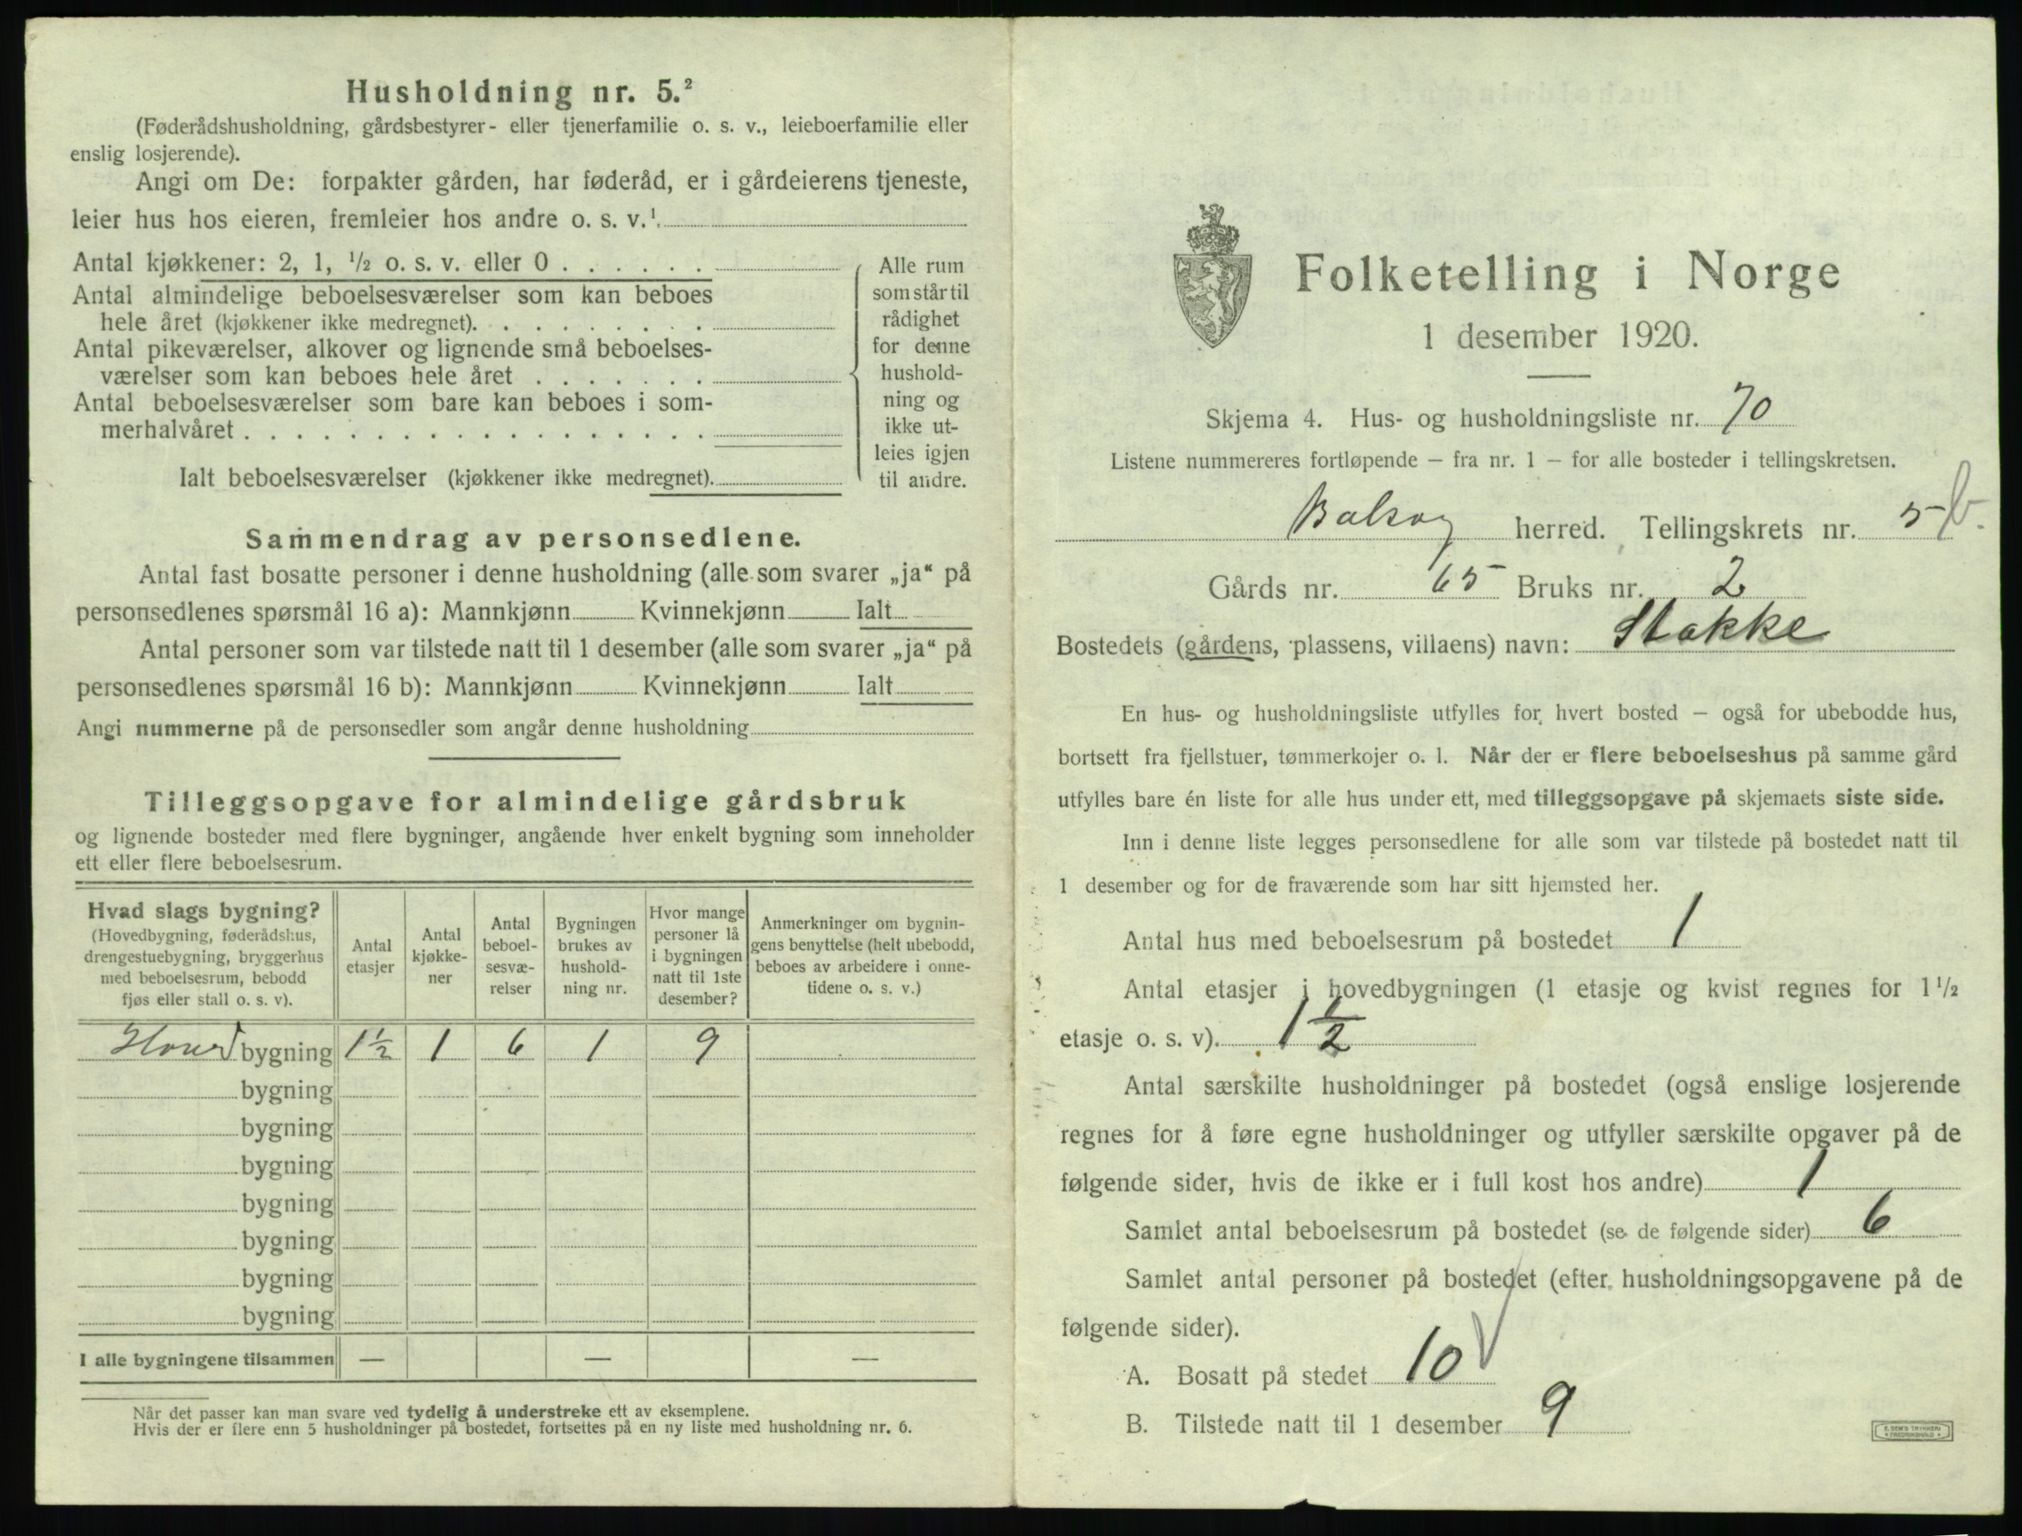 Husholdning nr. 5.²
(Føderådshusholdning, gårdsbestyrer- eller tjenerfamilie o. s. v., leieboerfamilie eller
enslig losjerende).
Angi om De: forpakter gården, har føderåd, er i gårdeierens tjeneste,
leier hus hos eieren, fremleier hos andre o. s. v.¹
Antal kjøkkener: 2, 1, ½ o. s. v. eller 0 . . . . . .
Antal almindelige beboelsesværelser som kan beboes
hele året (kjøkkener ikke medregnet). . . . . . . . .
Antal pikeværelser, alkover og lignende små beboelses-
værelser som kan beboes hele året . . . . . . .
Antal beboelsesværelser som bare kan beboes i som-
merhalvåret . . . . . . . . . . . . . . . . . .
Ialt beboelsesværelser (kjøkkener ikke medregnet).
Alle rum
som står til
rådighet
for denne
hushold-
ning og
ikke ut-
leies igjen
til andre.
Sammendrag av personsedlene.
Antal fast bosatte personer i denne husholdning (alle som svarer „ja“ på
personsedlenes spørsmål 16 a): Mannkjønn Kvinnekjønn Ialt
Antal personer som var tilstede natt til 1 desember (alle som svarer „ja“ på
personsedlenes spørsmål 16 b): Mannkjønn Kvinnekjønn Ialt
Angi nummerne på de personsedler som angår denne husholdning
Tilleggsopgave for almindelige gårdsbruk
og lignende bosteder med flere bygninger, angående hver enkelt bygning som inneholder
ett eller flere beboelsesrum.
Hvad slags bygning?
(Hovedbygning, føderådshus,
drengestuebygning, bryggerhus
med beboelsesrum, bebodd
fjøs eller stall o. s. v).
Antal
etasjer
Antal
kjøkke-
ner
Antal
beboel-
sesvæ-
relser
Bygningen
brukes av
hushold-
ning nr.
Hvor mange
personer lå
i bygningen
natt til 1ste
desember?
Anmerkninger om bygnin-
gens benyttelse (helt ubebodd,
beboes av arbeidere i onne-
tidene o. s. v.)
Hoved bygning 1½ 1 6 1 9
bygning
bygning
bygning
bygning
bygning
bygning
bygning
I alle bygningene tilsammen — — —
Når det passer kan man svare ved tydelig å understreke ett av eksemplene.
Hvis der er flere enn 5 husholdninger på bostedet, fortsettes på en ny liste med husholdning nr. 6.
Folketelling i Norge
1 desember 1920.
Skjema 4. Hus- og husholdningsliste nr. 70
Listene nummereres fortløpende – fra nr. 1 – for alle bosteder i tellingskretsen.
Balsøy herred. Tellingskrets nr. 5 b.
Gårds nr. 65 Bruks nr. 2
Bostedets (gårdens, plassens, villaens) navn: Stakke
En hus- og husholdningsliste utfylles for hvert bosted – også for ubebodde hus,
bortsett fra fjellstuer, tømmerkojer o. l. Når der er flere beboelseshus på samme gård
utfylles bare én liste for alle hus under ett, med tilleggsopgave på skjemaets siste side.
Inn i denne liste legges personsedlene for alle som var tilstede på bostedet natt til
1 desember og for de fraværende som har sitt hjemsted her.
Antal hus med beboelsesrum på bostedet 1
Antal etasjer i hovedbygningen (1 etasje og kvist regnes for 1½
etasje o. s. v). 1½
Antal særskilte husholdninger på bostedet (også enslige losjerende
regnes for å føre egne husholdninger og utfyller særskilte opgaver på de
følgende sider, hvis de ikke er i full kost hos andre) 1
Samlet antal beboelsesrum på bostedet (se de følgende sider) 6
Samlet antal personer på bostedet (efter husholdningsopgavene på de
følgende sider).
A. Bosatt på stedet 10
B. Tilstede natt til 1 desember 9